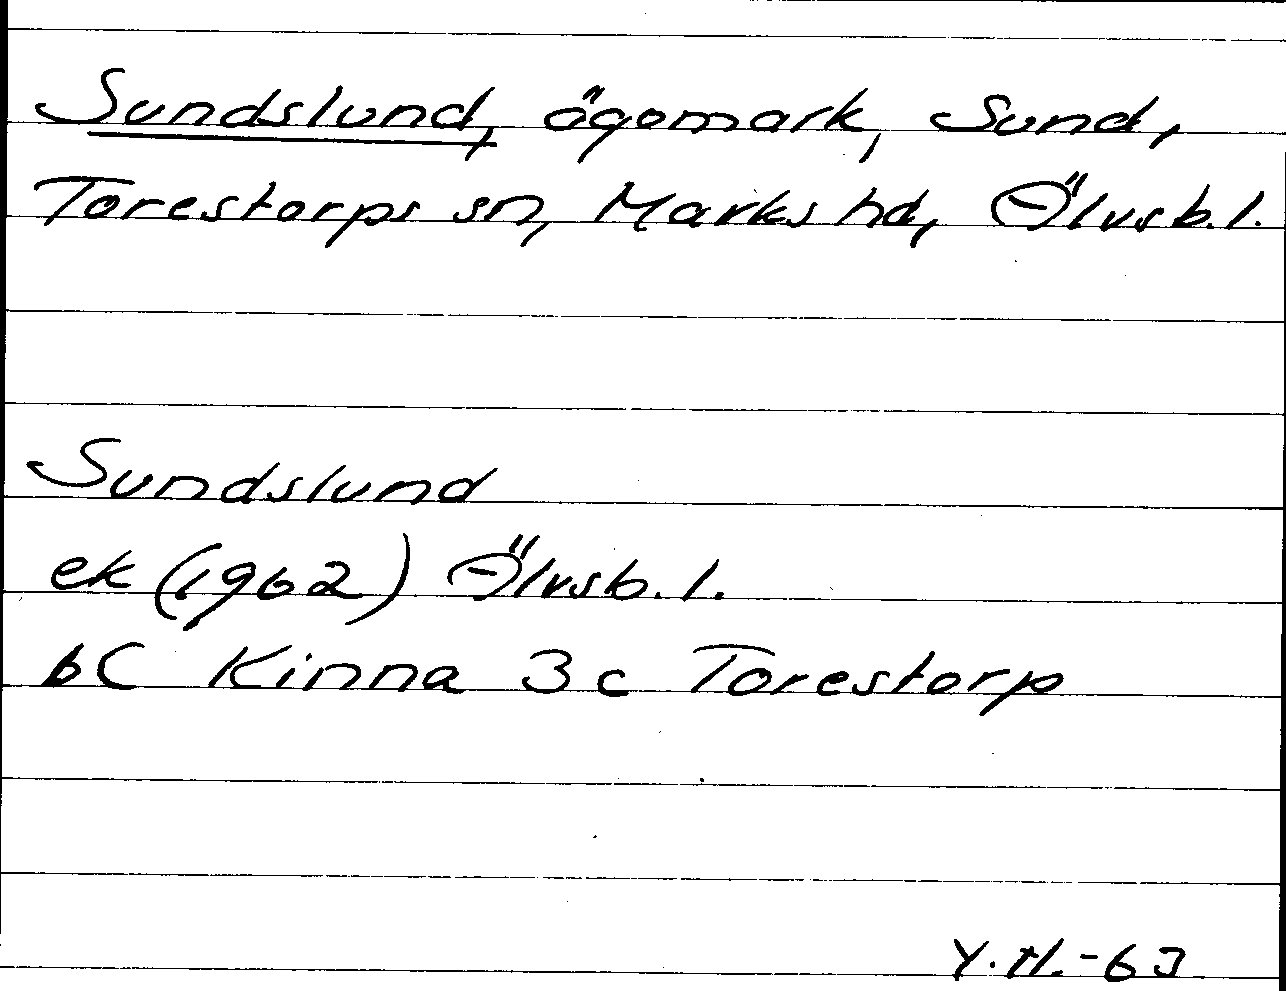 Sundslund, ägomark, Sund,
Torestorps sn, Marks hd, Älvsb. l.
Sundslund
ek (1962) Älvsb. l.
6C Kinna 3c Torestorp
Y. H. -63